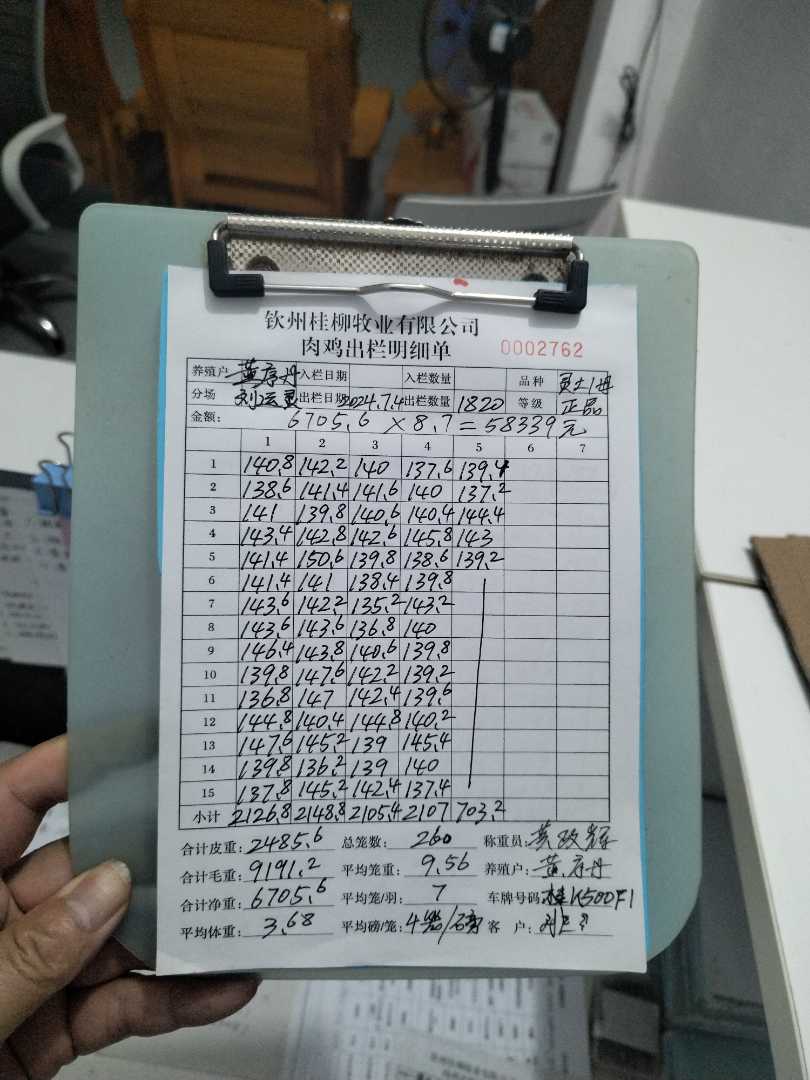 钦州桂柳牧业有限公司
肉鸡出栏明细单 0002762
养殖户 黄序丹 入栏日期 入栏数量 品种
分场 出栏日期 2024.7.4 出栏数量 1820 等级 正品
金额: 6705.6 × 8.7 = 58339元
1 2 3 4 5 6 7
1 140.8 142.2 140 137.6 139.4
2 138.6 141.4 141.6 140 137.2
3 141 139.8 140.6 140.4 144.4
4 143.4 142.8 142.6 145.8 143
5 141.4 150.6 139.8 138.6 139.2
6 141.4 141 138.4 139.8
7 143.6 142.2 135.2 143.2
8 143.6 143.6 136.8 140
9 146.4 143.8 140.6 139.8
10 139.8 147.6 142.2 139.2
11 136.8 147 142.4 139.6
12 144.8 140.4 144.8 140.2
13 147.6 145.2 139 145.4
14 139.8 136.2 139 140
15 137.8 145.2 142.4 137.4
小计 2126.8 2148.8 2105.4 2107 703.2
合计皮重: 2485.6 总笼数: 260 称重员:
合计毛重: 9191.2 平均笼重: 9.56 养殖户: 黄序丹
合计净重: 6705.6 平均笼/羽: 7 车牌号码: 桂K500F1
平均体重: 3.68 平均磅/笼: 4笼/磅 客户: